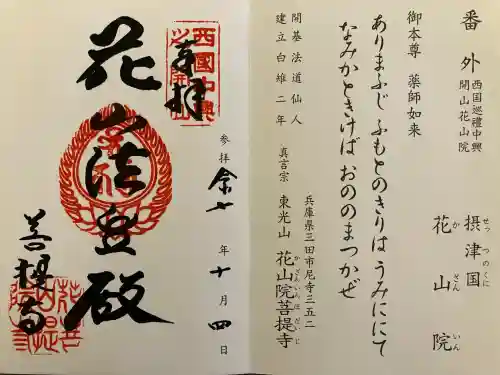 番外
西国巡禮中興
開山花山院
摂津国
せっつのくに
花山院
かざんいん
御本尊 薬師如来
ありまふじ ふもとのきりは うみににて
なみかときけば おののまつかぜ
開基 法道仙人
建立 白雉二年
兵庫県三田市尼寺三五二
真言宗 東光山 花山院菩提寺
かざんいんぼだいじ
奉拝
参拝 令七年十月四日
花山法皇殿
菩提寺